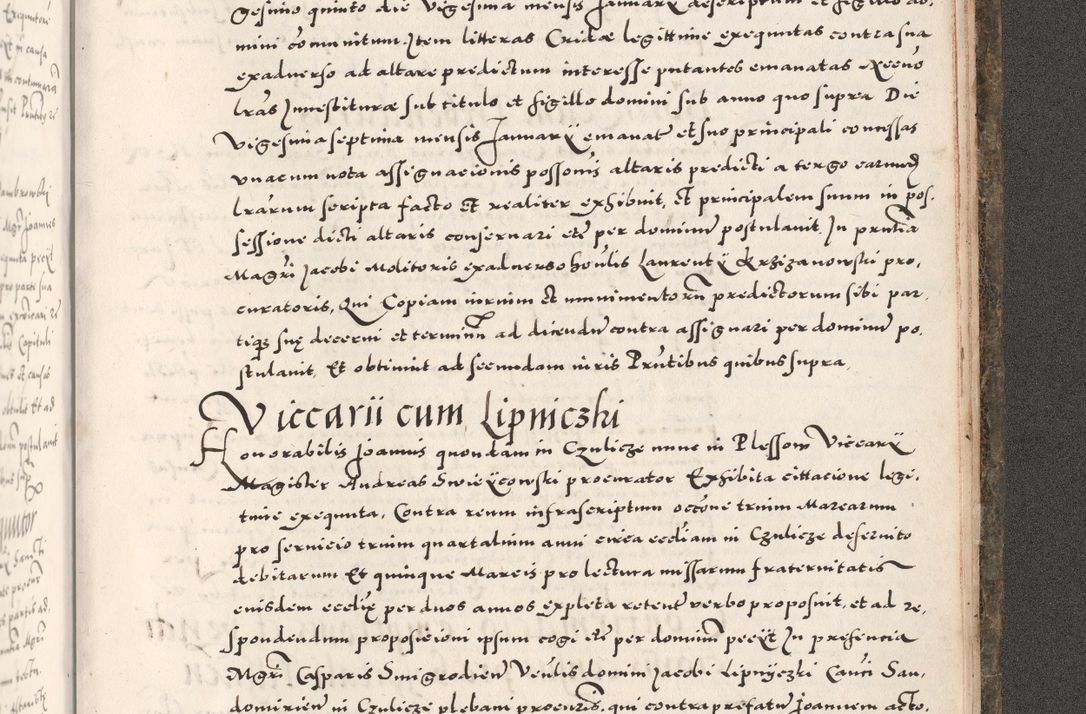 gesimo quinto die vigesima mensis Januarÿ descriptum et sigillo do-
mini communitum. Item litteras Cridæ legittime exequutas contra sua
exaduerso ad altare predictum interesse putantes emanatas Necnō
lras Inuestituræ sub titulo et sigillo domini sub anno quo supra Die
vigesima septima mensis Januarÿ emanat et suo principali concessas
unacum nota assignacionis possonis altaris predicti a tergo earund
lrarum scripta facto Et realiter exhibuit, Et principalem suum in pos-
sessione dicti altaris conseruari etc per dominum postulauit. In pntia
Magri Jacobi Molitoris exaduerso houlis Laurentÿ Krzizanowski pro-
curatoris, Qui Copiam iurium et munimentorū predictorum sibi par-
tiqz suę decerni et terminū ad dicendū contra assignari per dominum po-
stulauit, Et obtinuit ad secundam iuris Pntibus quibus supra,
Viccarii cum Lipniczki
Honorabilis Joannis quondam in Czulicze nunc in Plessow Viccarÿ
Magister Andreas Swieÿcowski procurator Exhibita cittacione legi-
time exequuta, Contra reum infrascriptum occōne trium Marcarum
pro seruicio trium quartalium anni circa ecclīam in Czulicze deseruito
debitarum Et quinque Marcis pro lectura missarum fraternitatis
eiusdem ecclīę per duos annos expleta retent verbo proposuit, et ad re-
spondendum proposicioni ipsum cogi etc per dominū peciit In presencia
Mgri Casparis Smigrodien Venlis domini Jacobi Lipnÿczki Cauci San-
domirien in Czulicze plebani procuris, qui contra prefatū Joannem acto-